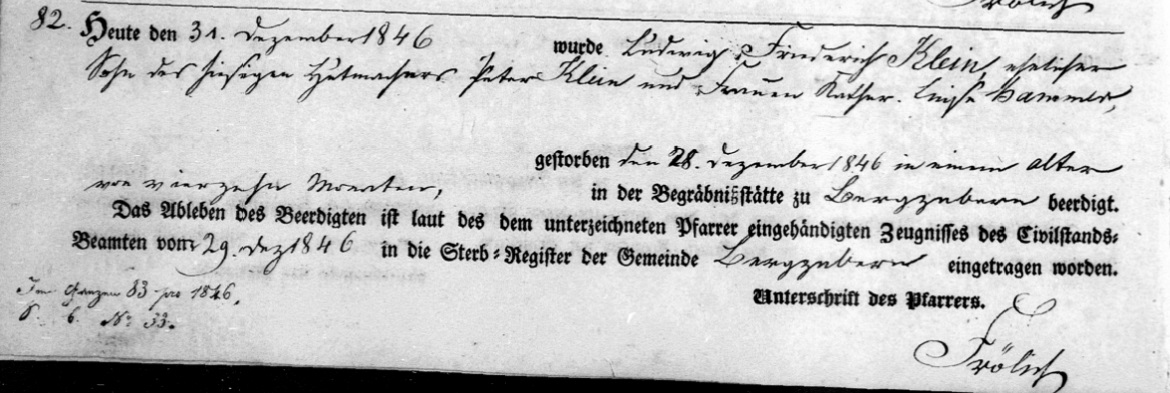 Frölich
82. Heute den 31. Dezember 1846 wurde Ludwig Friederich Klein, ehelicher
Sohn des hiesigen Hutmachers Peter Klein und Frauen Kathar. Luise Hammer,
gestorben den 28. Dezember 1846 in einem Alter
von vierzehn Monaten, in der Begräbnißstätte zu Bergzabern beerdigt.
Das Ableben des Beerdigten ist laut des dem unterzeichneten Pfarrer eingehändigten Zeugnisses des Civilstands-
Beamten vom 29. Dez 1846 in die Sterb-Register der Gemeinde Bergzabern eingetragen worden.
Im Ganzen 83 pro 1846. Unterschrift des Pfarrers.
S. 6. No 33.
Frölich